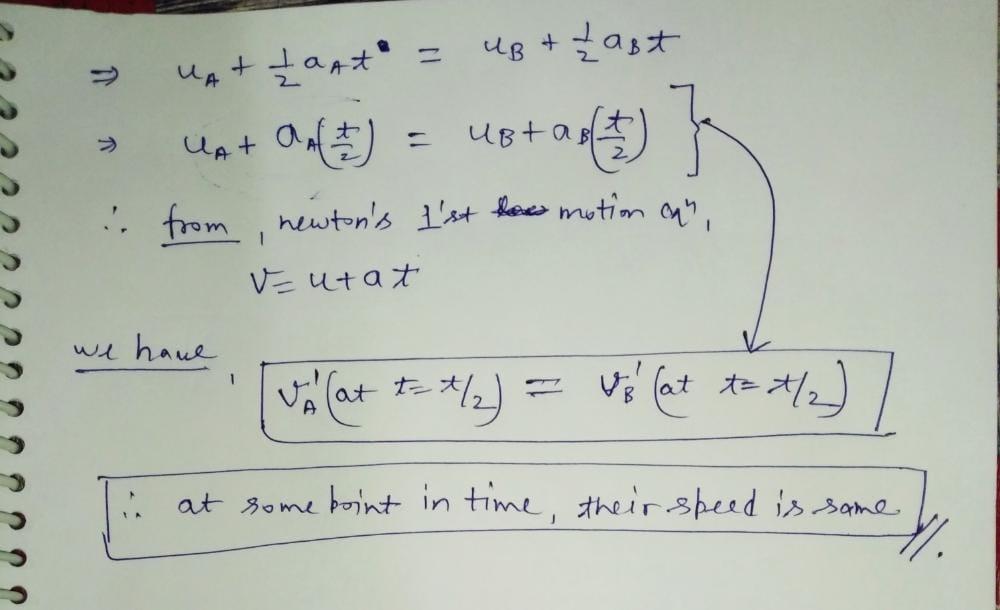 ⇒ u_A + 1/2 a_A t = u_B + 1/2 a_B t
⇒ u_A + a_A(t/2) = u_B + a_B(t/2)
∴ from, newton's 1'st motion eqⁿ,
V = u + at
we have,
V'_A (at t = t/2) = V'_B (at t = t/2)
∴ at some point in time, their speed is same //.